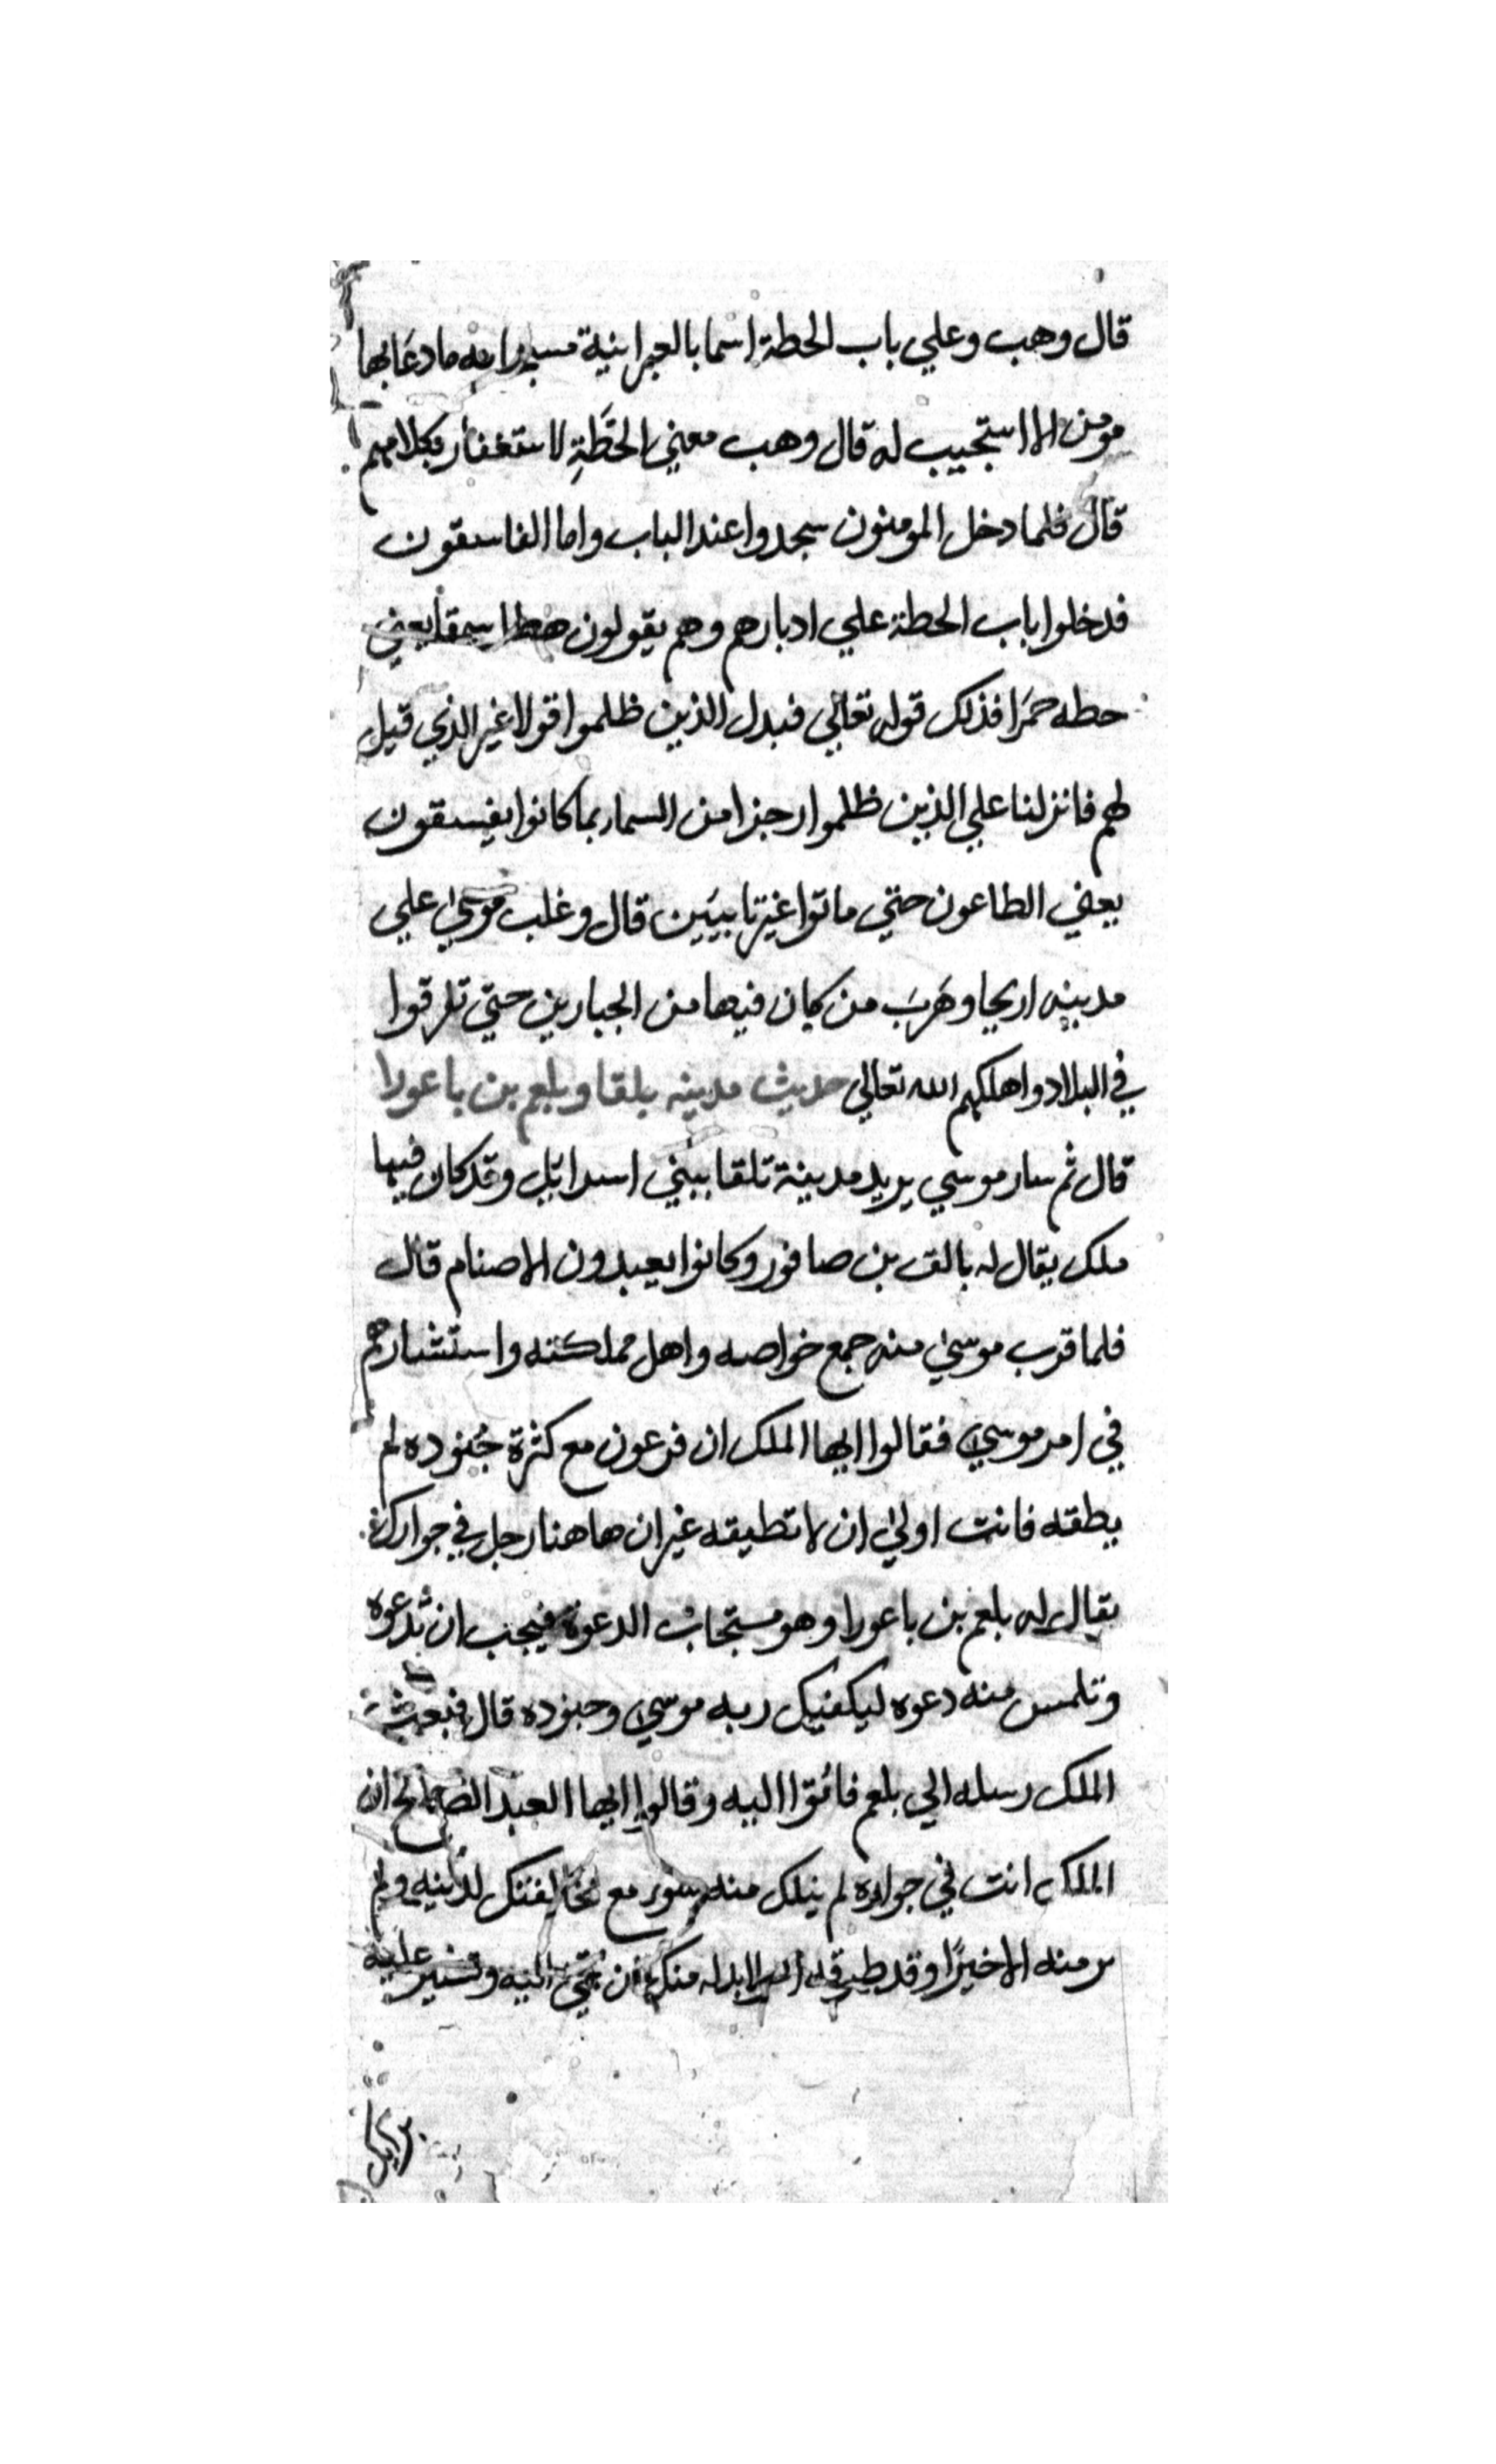 قال وهب وعلي باب الحطة اسما بالعبرانية ما دعا بها
مومن الا استجيب له قال وهب معني الحَطَّةِ لاستغفار بكلامهم
قال فلما دخل المومنون سجدوا عند الباب واما الفاسقون
فدخلوا باب الحطة علي ادبارهم وهم يقولون يعني
حطه حمرا فذلك قوله تعالي فبدل الذين ظلموا قولا غير الذي قيل
لهم فانزلنا علي الذين ظلموا رجزا من السماء بما كانوا يفسقون
يعني الطاعون حتي ماتوا غير تايبين قال وغلب موسي علي
مدينه اريحا وهَرَبَ من كان فيها من الجبارين حتي تفرقوا
في البلاد واهلكهم الله تعالي حديث مدينه بلقا وبلعم بن باعورا
قال ثم سار موسي يريد مدينة تلقا ببني اسرائل وقد كان فيها
ملك يقال له بالق بن صافور وكانوا يعبدون الاصنام قال
فلما قرب موسي منه جمع خواصه واهل مملكته واستشارهم
في امر موسي فقالوا ايها الملك ان فرعون مع كثرة جُنوده لم
يطقه فانت اولي ان لا تطيقه غير ان هاهنا رجل في جوارك
يقال له بلعم بن باعورا وهو مستجاب الدعوة فيجب ان تدعوه
وتلمس منه دعوه ليكفيك ربه موسي وجنوده قال فبعث
الملك رسله الي بلعم فاتوا اليه وقالوا ايها العبد الصالح ان
الملك انت في جواره لم ينلك منه سوء مع مخالفتك لدينه ولم
تر منه الا خيرًا وقد منك ان تجي اليه وتشير عليه